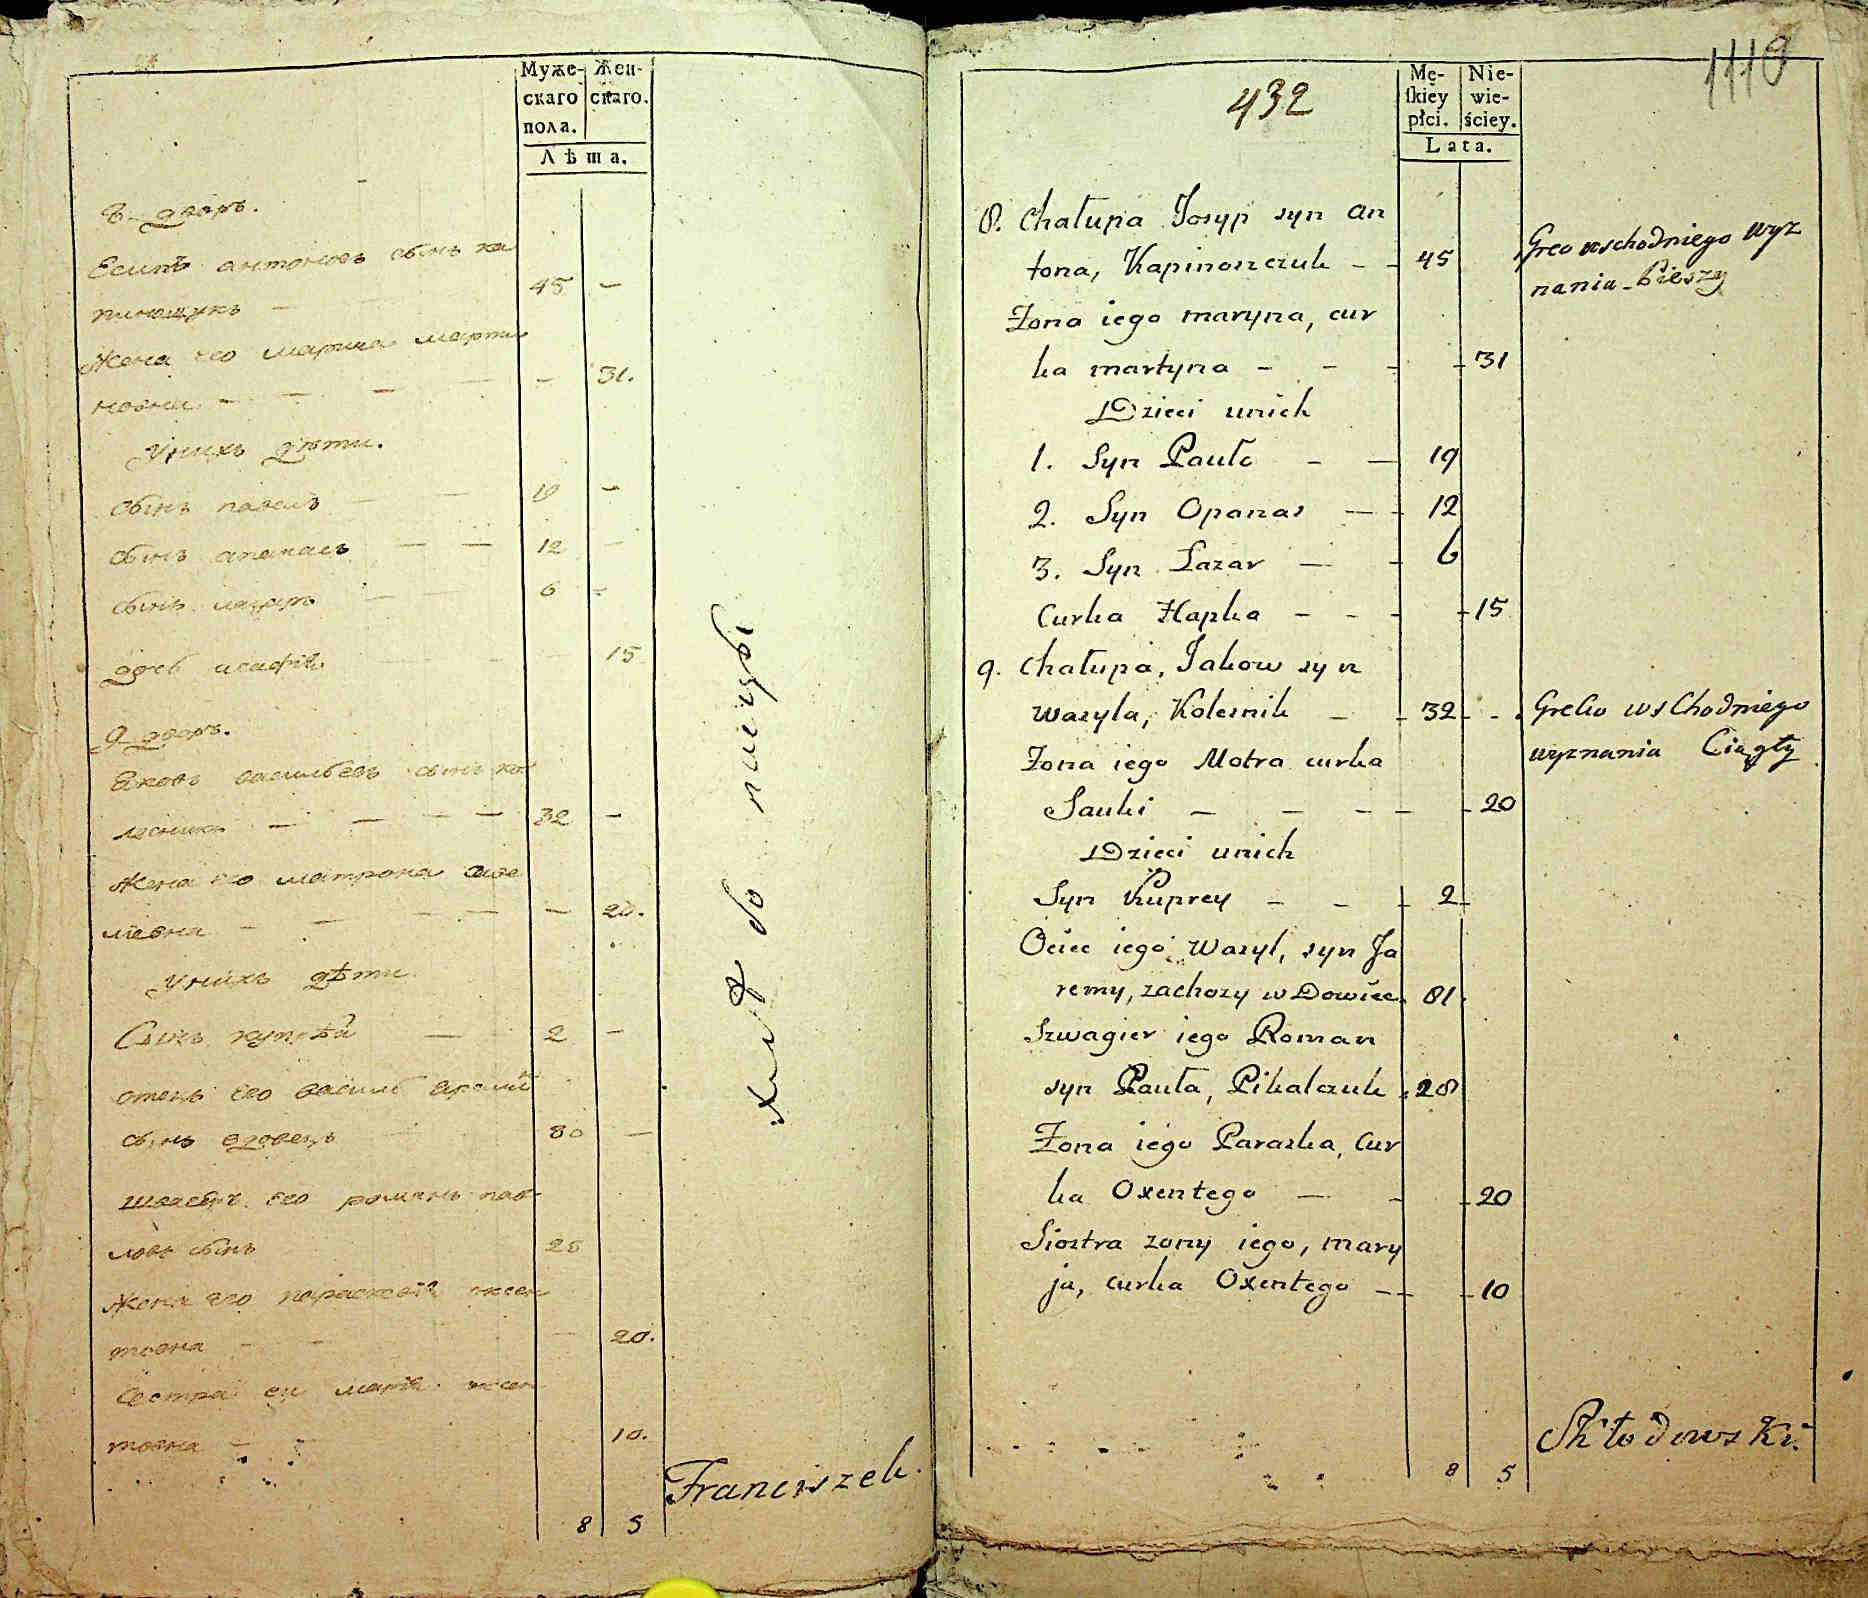 Муже-
скаго
пола.
Жен-
скаго.
Лѣта.
8 дворъ.
Есипъ антоновъ сынъ ка
пинощукъ — 45 —
Жена его марина марти
новна — — — — 31.
Унихъ дѣти.
Сынъ павелъ — — 19 —
Сынъ апанасъ — — 12 —
Сынъ лазаръ — — 6 —
дочь агафія — — — 15
9 дворъ.
Яковъ васильевъ сынъ ко
лесникъ — — — — 32 —
Жена его матрона саве
лиевна — — — — — 20.
Унихъ дѣти
Сынъ купрѣй — 2 —
отецъ его василь ярем
сынъ вдовецъ — 80 —
швагеръ его романъ пав
ловъ сынъ 28
Жена его параскевія оксен
товна — — — 20.
Сестра еи марія оксен
товна — — 10.
8 5
Franciszek
432
1119
Mę-
skiey
płci.
Nie-
wie-
ściey.
Lata.
8. Chałupa Josyp syn an
tona, Kapinoszczuk - - 45
Greo wschodniego wyz
nania - Pieszy
Żona iego maryna, cur
ka martyna - - - - 31
Dzieci unich
1. Syn Pauło - — 19
2. Syn Opanas — - 12
3. Syn Łazar — - 6
Curka Hapka - - - - 15
9. Chałupa, Jakow syn
Wasyla, Kolesnik - - 32 - -
Greko wschodniego
wyznania Ciągły
Żona iego Motra curka
Sauki — — - — - 20
Dzieci unich
Syn Kuprey - - - 2
Ociec iego Wasyl, syn Ja
remy, zachozy w Dowiec. 81.
Szwagier iego Roman
syn Pauła, Pikalczuk . 28
Żona iego Paraska, Cur
ka Oxentego — - - 20
Siostra zony iego, mary
ja, curka Oxentego - - - 10
Skłodowski.
8 5